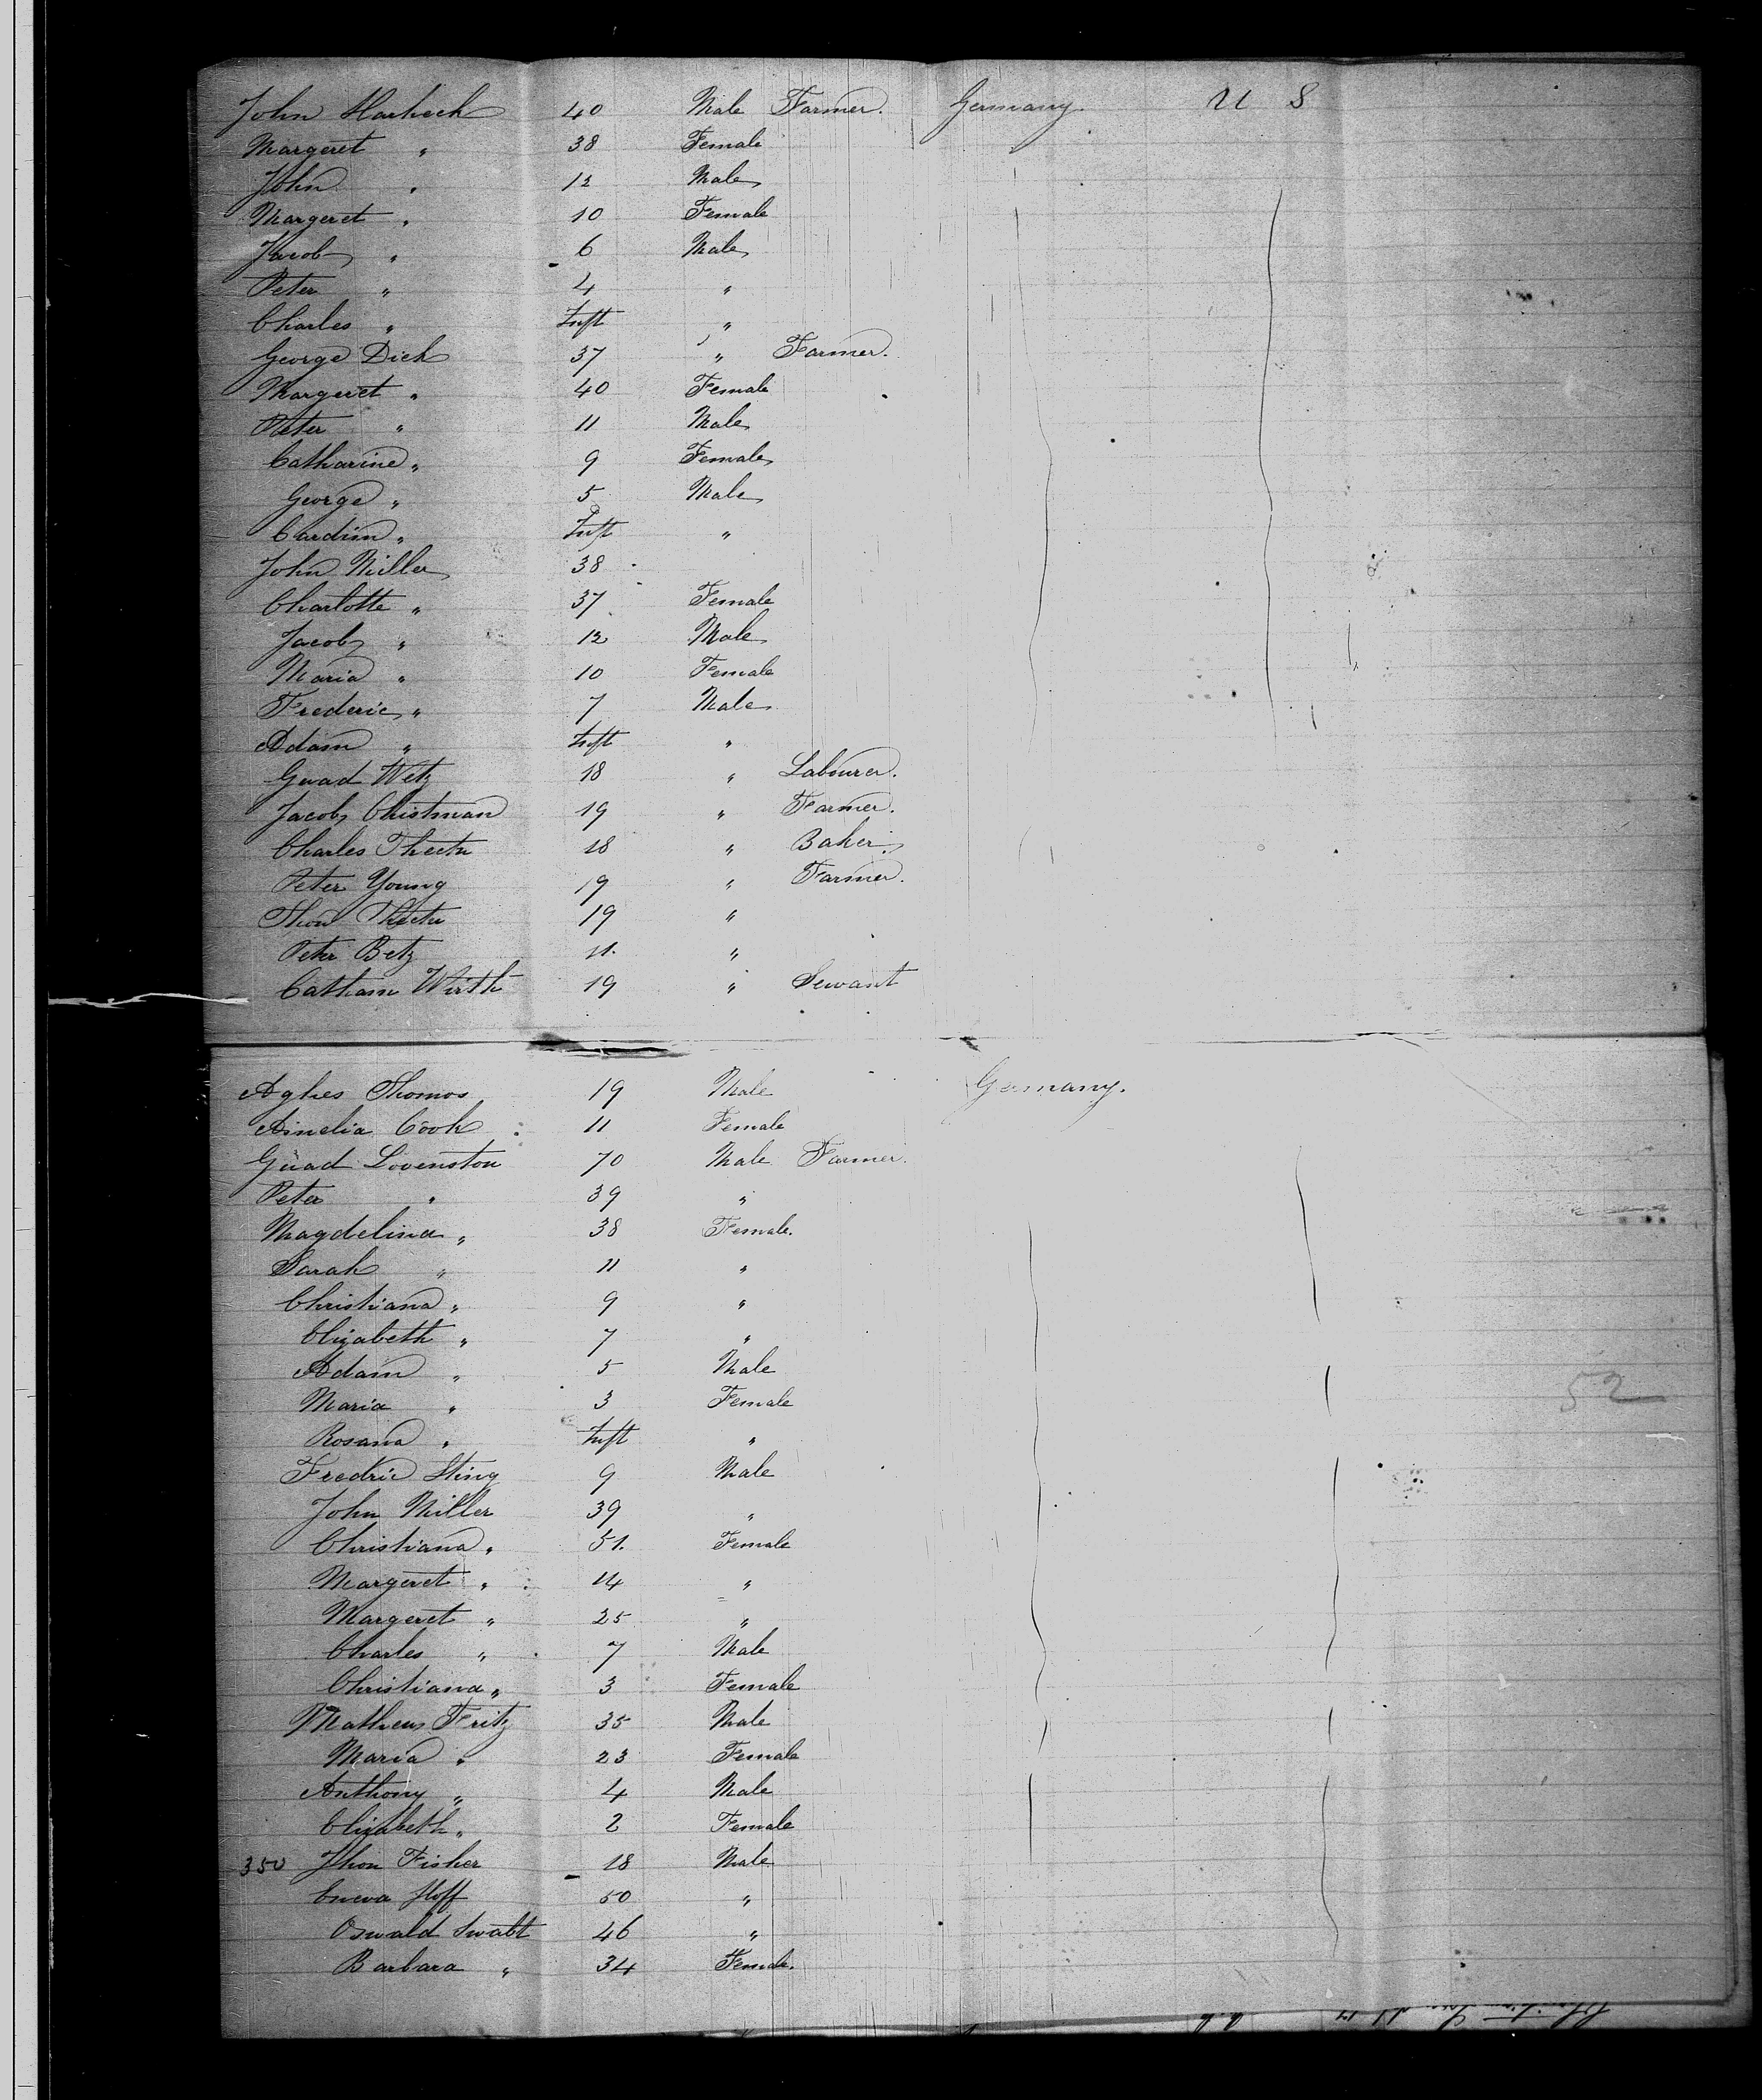 John Harbech 40 Male Farmer. Germany. U S
Margeret " 38 Female
John " 12 Male
Margeret " 10 Female
Jacob " 6 Male
Peter " 4 "
Charles " Inft "
George Dich 37 " Farmer.
Margeret " 40 Female
Peter " 11 Male
Catharine " 9 Female
George " 5 Male
" Inft "
John Miller 38
Charlotte " 37 Female
Jacob " 12 Male
Maria " 10 Female
Frederic " 7 Male
Adam " Inft "
Guad Wetz 18 " Labourer.
Jacob Christman 19 " Farmer.
Charles 18 " Baker
Peter Young 19 " Farmer.
19 "
Peter Betz 11. "
Catham Wirth 19 " Servant
Aghes Thomos 19 Male Germany.
Amelia Cook 11 Female
Guad Lovenston 70 Male Farmer.
Peter " 39 "
Magdelina " 38 Female.
Sarah " 11 "
Christiana " 9 "
Elizabeth " 7 "
Adam " 5 Male
52
Maria " 3 Female
Rosana " Inft "
Fredric Sting 9 Male
John Miller 39 "
Christiana " 51. Female
Margeret " 14 "
Margeret " 25 "
Charles " 7 Male
Christiana " 3 Female
Matheus Fritz 35 Male
Maria " 23 Female
Anthony " 4 Male
Elizabeth " 2 Female
350 Jhon Fisher 18 Male
Hoff 50 "
Oswald Swabt 46 "
Barbara " 34 Female.